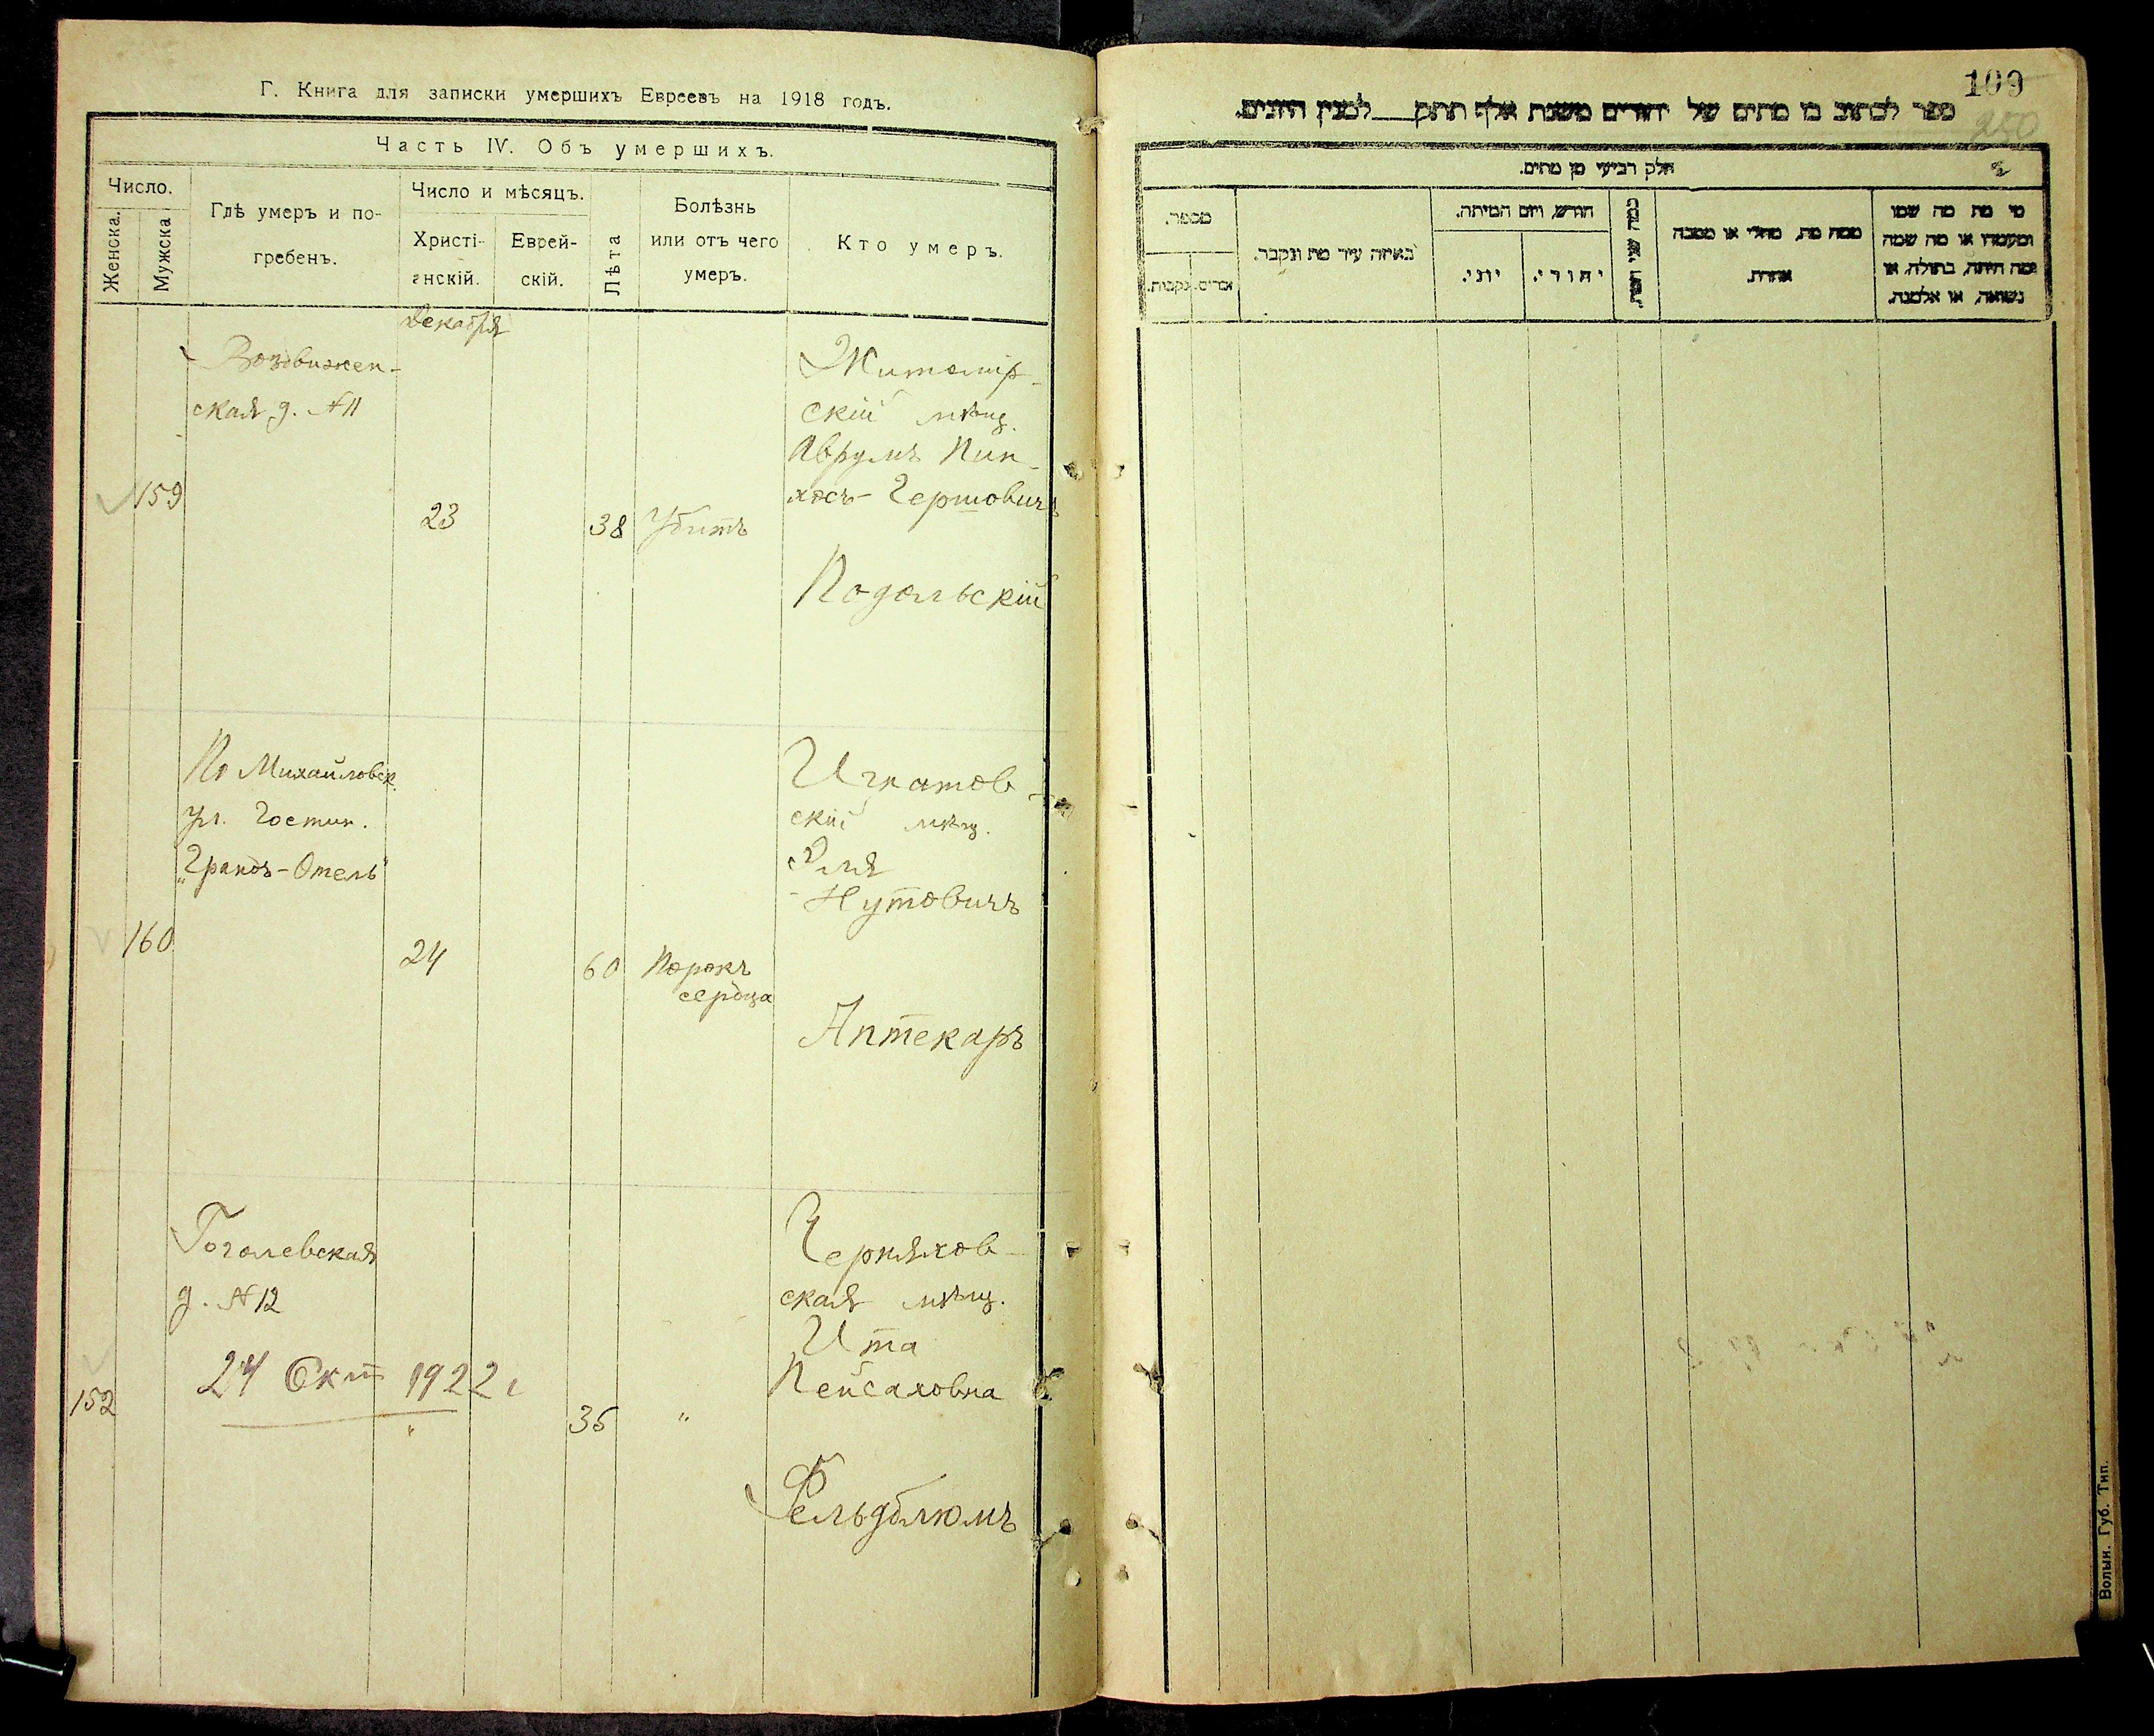 Г. Книга для записки умершихъ Евреевъ на 1918 годъ.
Часть IV. Объ умершихъ.
Число.
Женска.
Мужска
Гдѣ умеръ и по-
гребенъ.
Число и мѣсяцъ.
Христі-
анскій.
Еврей-
скій.
Лѣта
Болѣзнь
или отъ чего
умеръ.
Кто умеръ.
Декабря
159
Воздвижен-
ская д. №11
23
38
Убитъ
Житомір-
скій мѣщ.
Аврумъ Пин-
хосъ-Гершовичъ
Подольскій
160
По Михайловск.
ул. Гостин.
„Грандъ-Отель"
24
60
Порокъ
сердца
Игнатов-
скій мѣщ.
Эля
Нутовичъ
Аптекаръ
152
Гоголевская
д. №12
24 Окт 1922 г
"
35
"
Черняхов-
ская мѣщ.
Ита
Пейсаховна
Фельдблюмъ
109
250
ספר לכתוב בו מתים של יהודים משנת אלף תתק___למנין היונים.
חלק רביעי מן מתים.
מספר.
זכרים.
נקבות.
באיזה עיר מת ונקבר.
חודש, ויום המיתה.
יוני.
יהודי.
כמה שני חיות.
ממה מת, מחלי או מסבה
אחרת.
מי מת מה שמו
ומעמדו או מה שמה
ומה היתה, בתולה, או
נשואה, או אלמנה.
Волын. Губ. Тип.